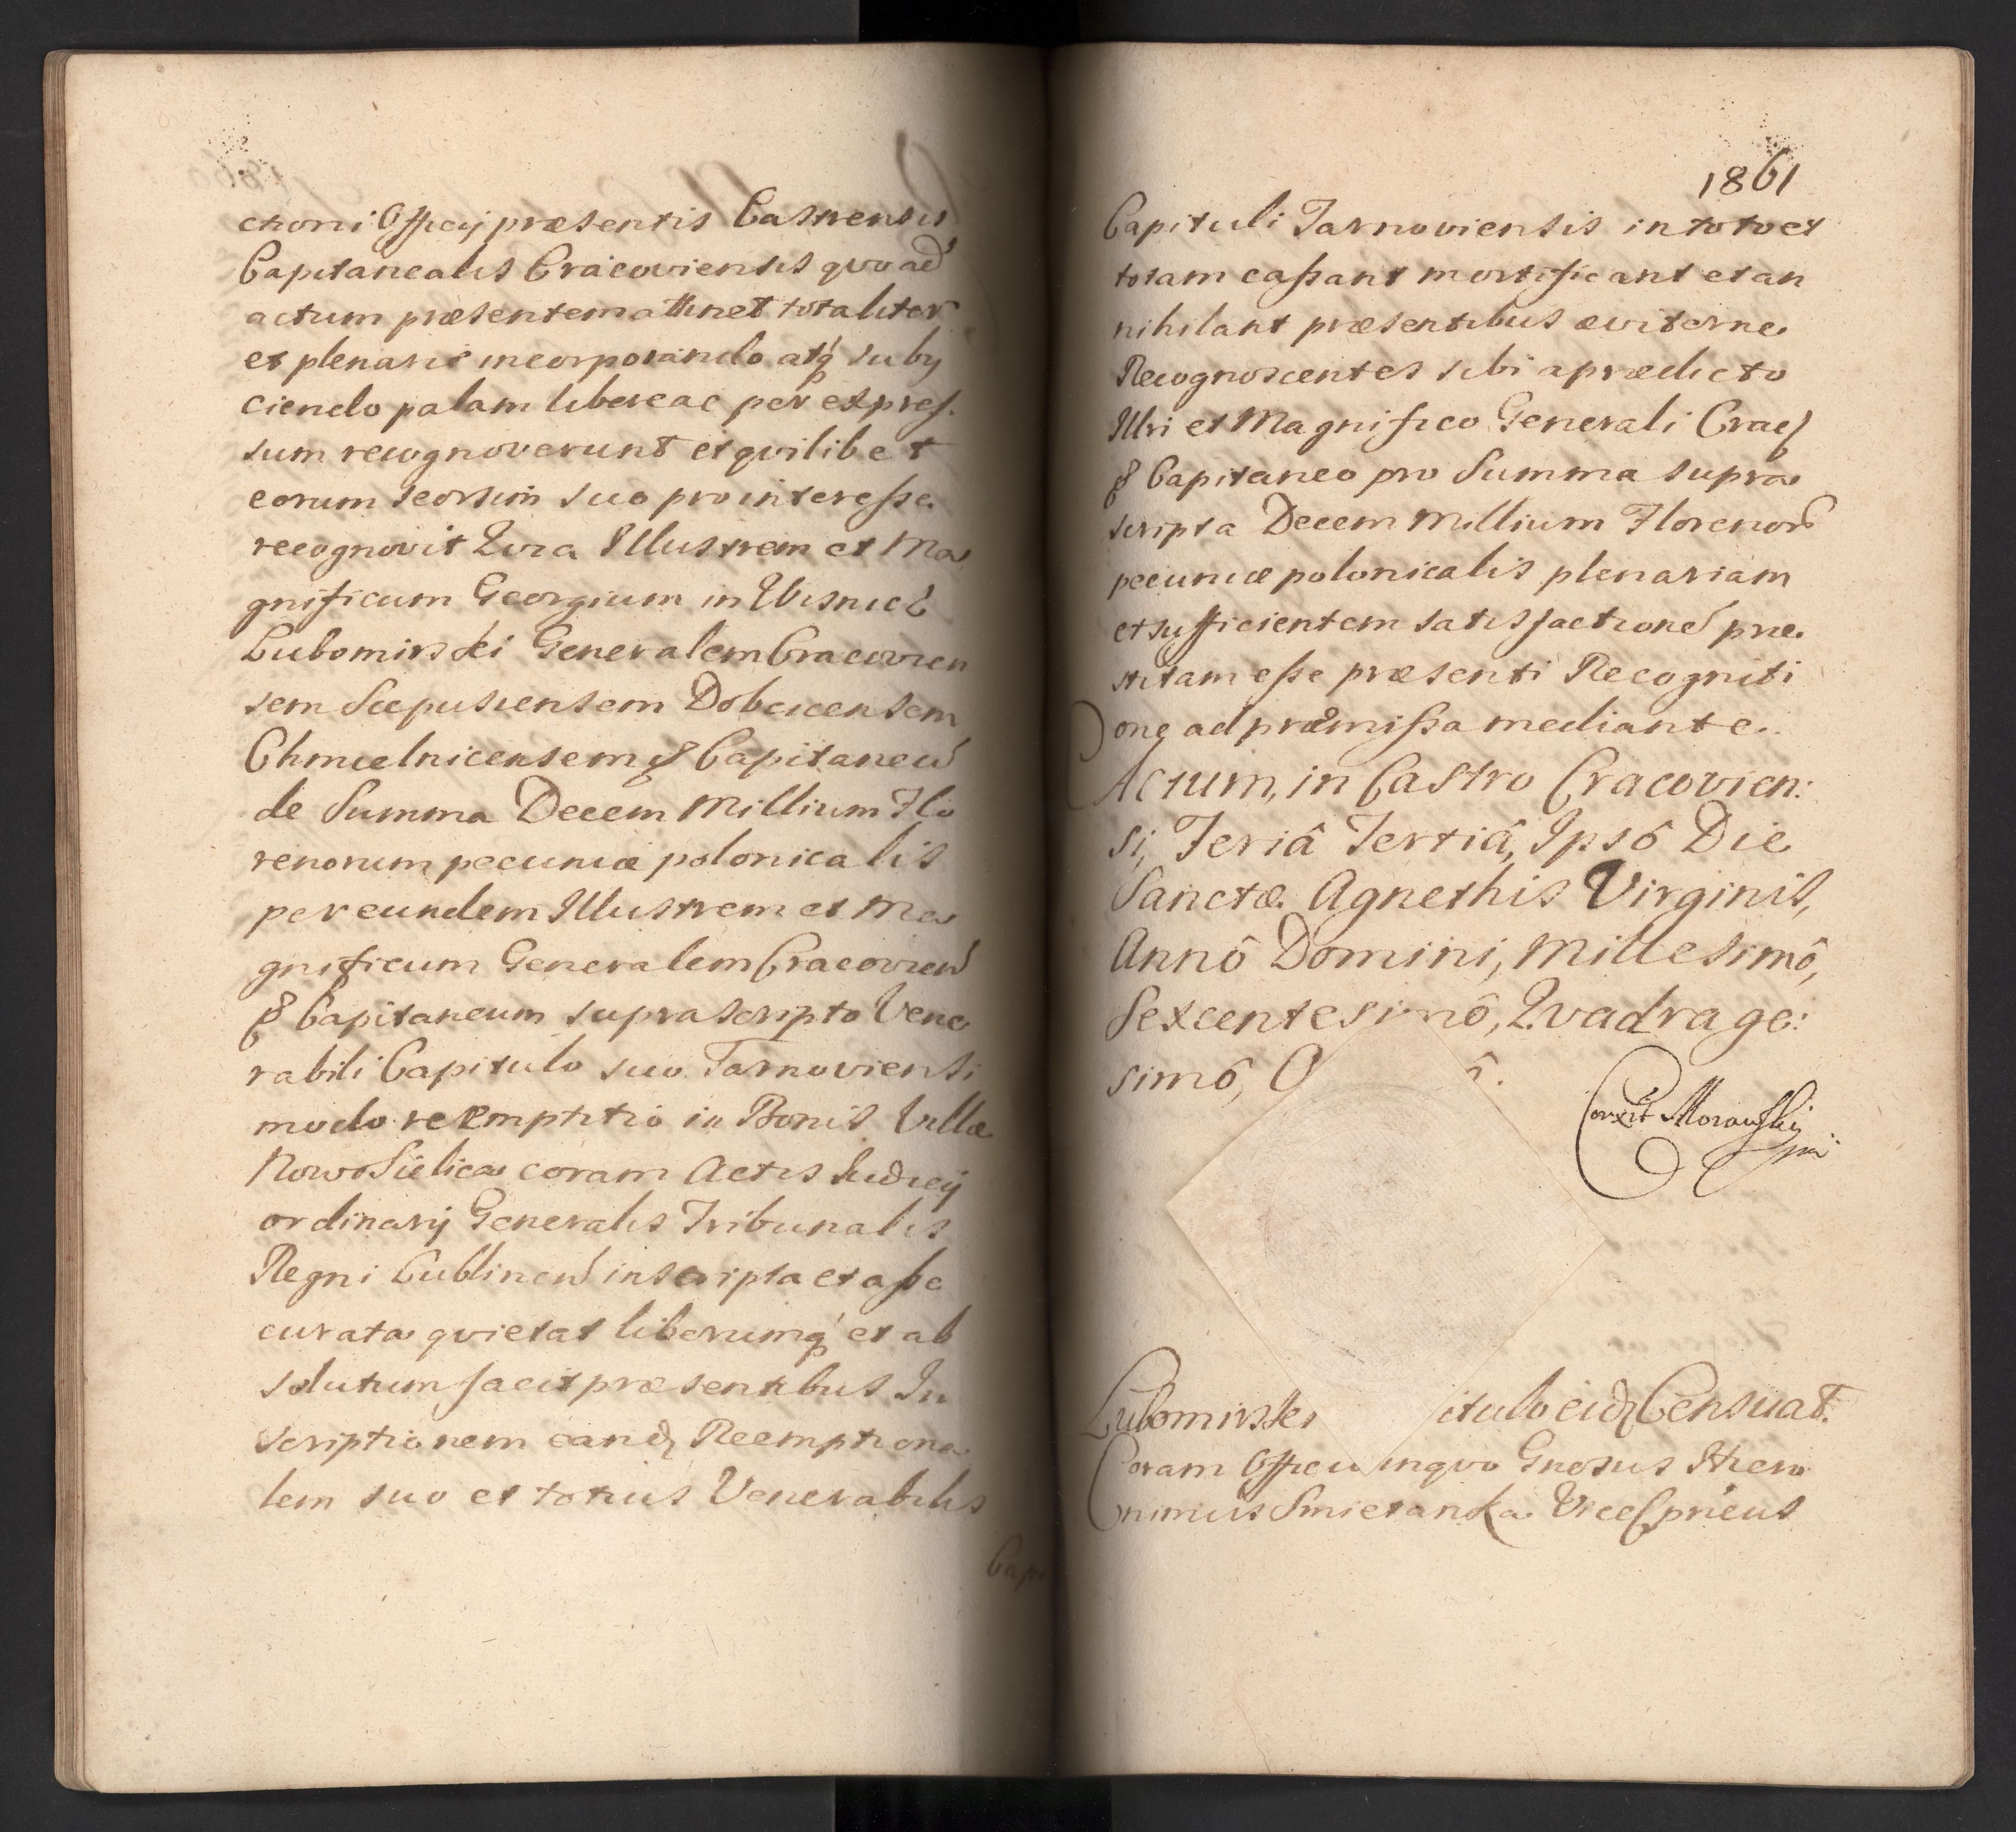 ctioni Officij præsentis Castrensis
Capitanealis Cracoviensis qvo ad
actum præsentem attinet totaliter
et plenarie incorporando atq́ subij
ciendo palam libereac per expres
sum recognoverunt et qvilibet
eorum seorsim suo pro interesse
recognovit Qvia Illustrem et Ma
gnificum Georgium in Wisnicz
Lubomirski Generalem Cracovien
sem Scepusiensem Dobcicensem
Chmielnicensem & Capitaneu
de Summa Decem Millium Flo
renorum pecuniæ polonicalis
per eundem Illustrem et Ma
gnificum Generalem Cracovien
& Capitaneum suprascripto Vene
rabili Capitulo suo Tarnoviensi
modo reemptitio in Bonis Villæ
Nowosielica coram Actis Judicij
ordinarij Generalis Tribunalis
Regni Lublinen inscripta et asse
curata qvietat liberumq́ et ab
solutum facit præsentibus In
scriptionem eand Reemptiona
lem suo et totius Venerabilis
Capi
1861
Capituli Tarnoviensis in toto et
totam cassant mortificant et an
nihilant præsentibus æviterne
Recognoscentes sibi a prædicto
Illri et Magnifico Generali Crac
& Capitaneo pro Summa supra
scripta Decem Millium Florenor
pecuniæ polonicalis plenariam
et sufficientem satisfactione præ
stitam esse præsenti Recogniti
one ad præmissa mediante.
Actum, in Castro Cracovien:
si, Feriâ Tertiâ, Ipsô Die
Sanctæ Agnethis Virginis,
Annô Domini, Millesimô,
Sexcentesimô, Qvadrage:
simô, O ô.
Corxit Morawski
mp
Lubomirski itulo eid Censuat.
Coram Officio inqvo Gnosus Hiero
nimus Smietanka Vicesprėns